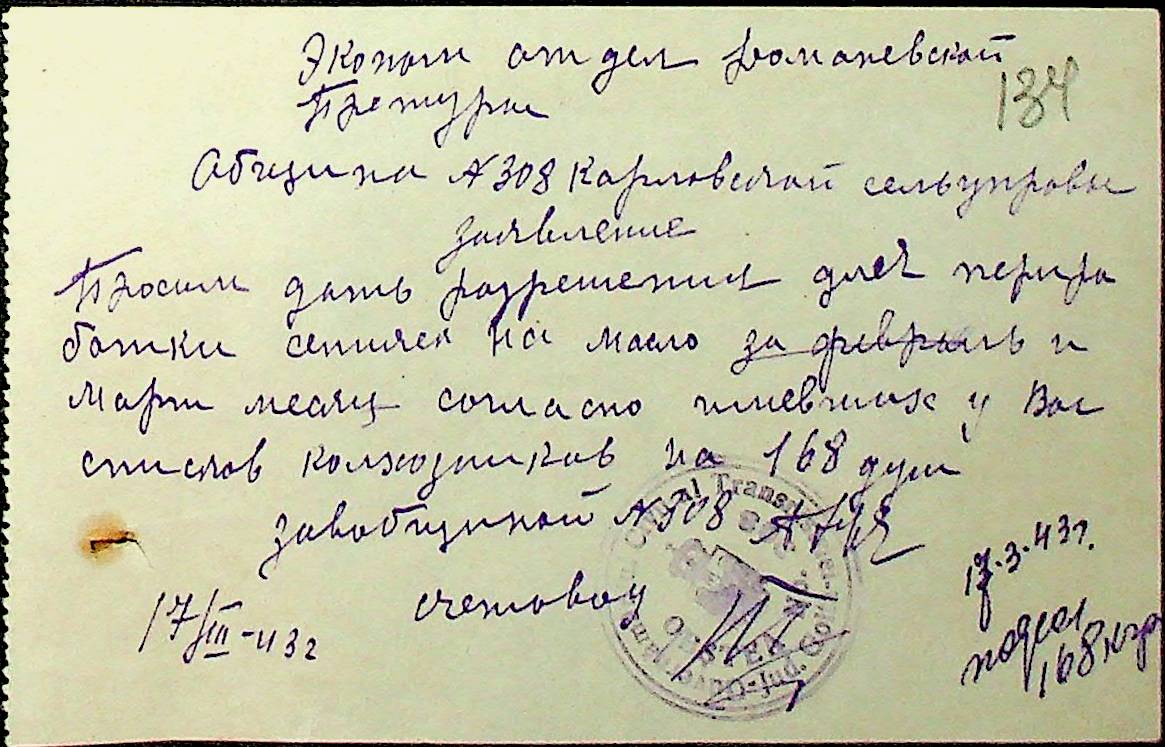 Эконом отдел Доманевской
Претуры
134
Община N308 Карловской сельуправы
заявление
Просим дать разрешения для перира
ботки семячек на масло за февраль и
Март месяц согласно имевших у Вас
списков колхозников на 168 душ
завобщиной N308
счетовод
17/III-43г
17.3.43г.
168 кгр